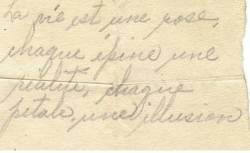 La vie est une rose,
chaque épine une
réalité, chaque
pétale, une illusion